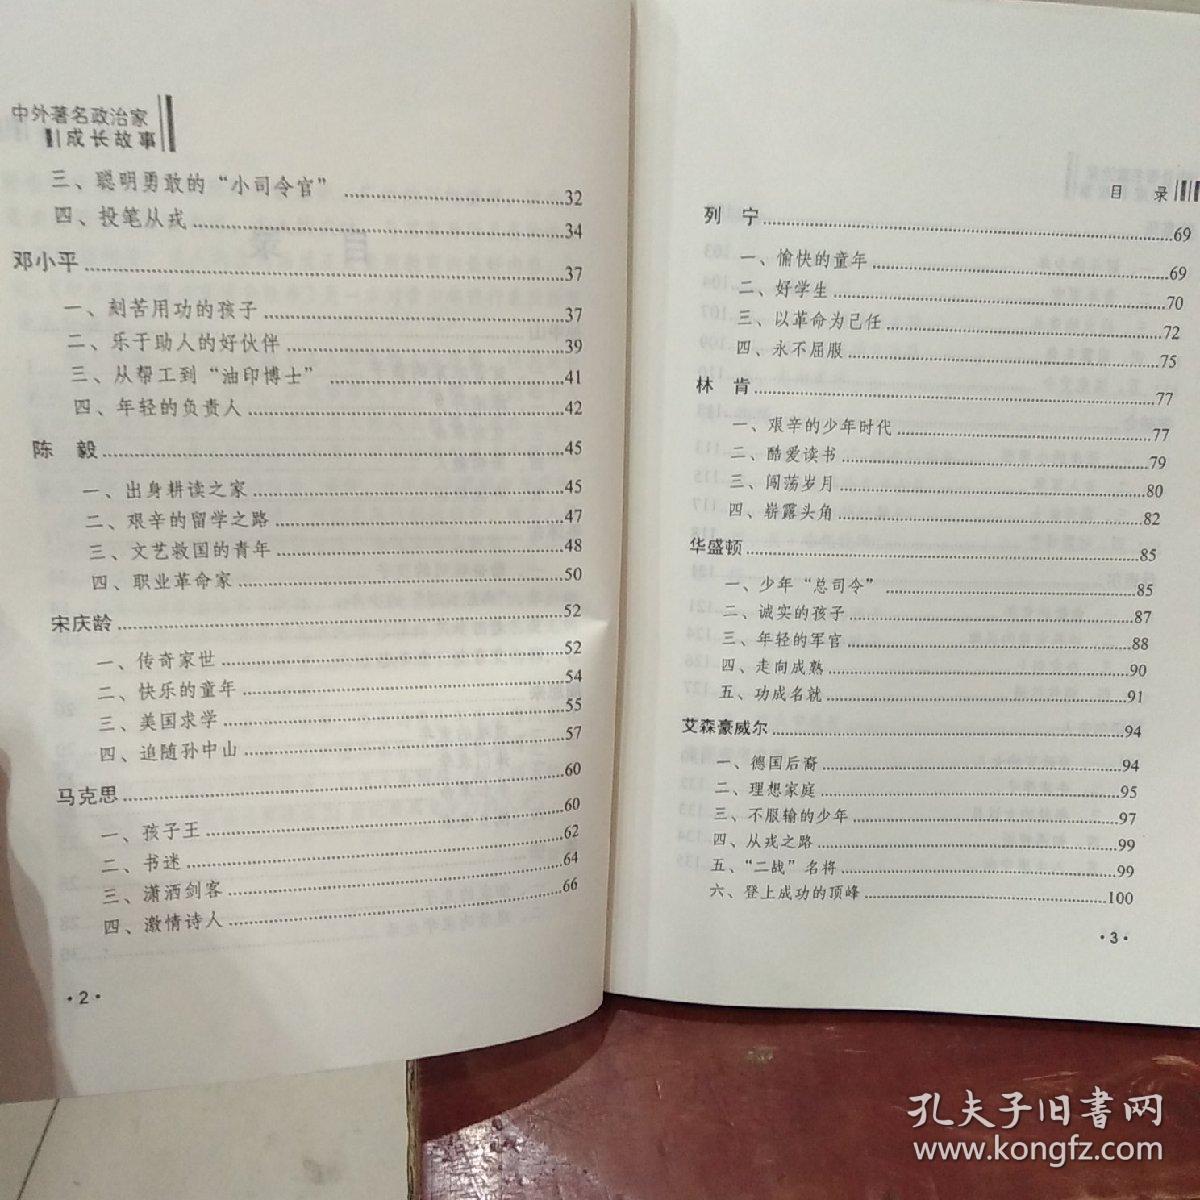 中外著名政治家
成长故事
三、聪明勇敢的“小司令官” ……32
四、投笔从戎……34
邓小平……37
一、刻苦用功的孩子……37
二、乐于助人的好伙伴……39
三、从帮工到“油印博士” ……41
四、年轻的负责人……42
陈　毅……45
一、出身耕读之家……45
二、艰辛的留学之路……47
三、文艺救国的青年……48
四、职业革命家……50
宋庆龄……52
一、传奇家世……52
二、快乐的童年……54
三、美国求学……55
四、追随孙中山……57
马克思……60
一、孩子王……60
二、书迷……62
三、潇洒剑客……64
四、激情诗人……66
·2·
目　录
列　宁……69
一、愉快的童年……69
二、好学生……70
三、以革命为己任……72
四、永不屈服……75
林　肯……77
一、艰辛的少年时代……77
二、酷爱读书……79
三、闯荡岁月……80
四、崭露头角……82
华盛顿……85
一、少年“总司令”……85
二、诚实的孩子……87
三、年轻的军官……88
四、走向成熟……90
五、功成名就……91
艾森豪威尔……94
一、德国后裔……94
二、理想家庭……95
三、不服输的少年……97
四、从戎之路……99
五、“二战”名将……99
六、登上成功的顶峰……100
·3·
孔夫子旧书网
www.kongfz.com